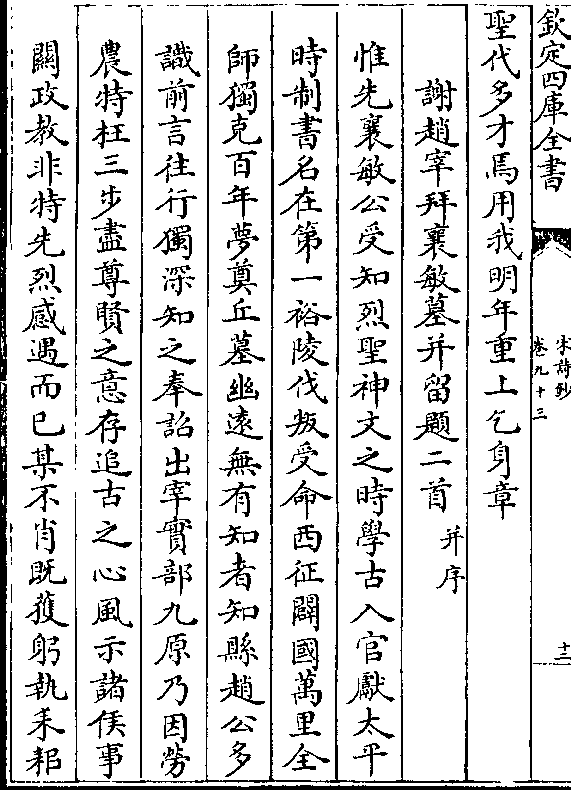 欽定四庫全書
宋詩鈔
卷九十三
十三
聖代多才焉用我明年重上乞身章
謝趙宰拜襄敏墓并留題二首
并序
惟先襄敏公受知烈聖神文之時學古入官獻太平
時制書名在第一裕陵伐叛受命西征闢國萬里全
師獨克百年夢奠丘墓幽遠無有知者知縣趙公多
識前言往行獨深知之奉詔出宰實部九原乃因勞
農特枉三步盡尊賢之意存追古之心風示諸侯事
關政教非特先烈感遇而已某不肖既獲躬執耒耜